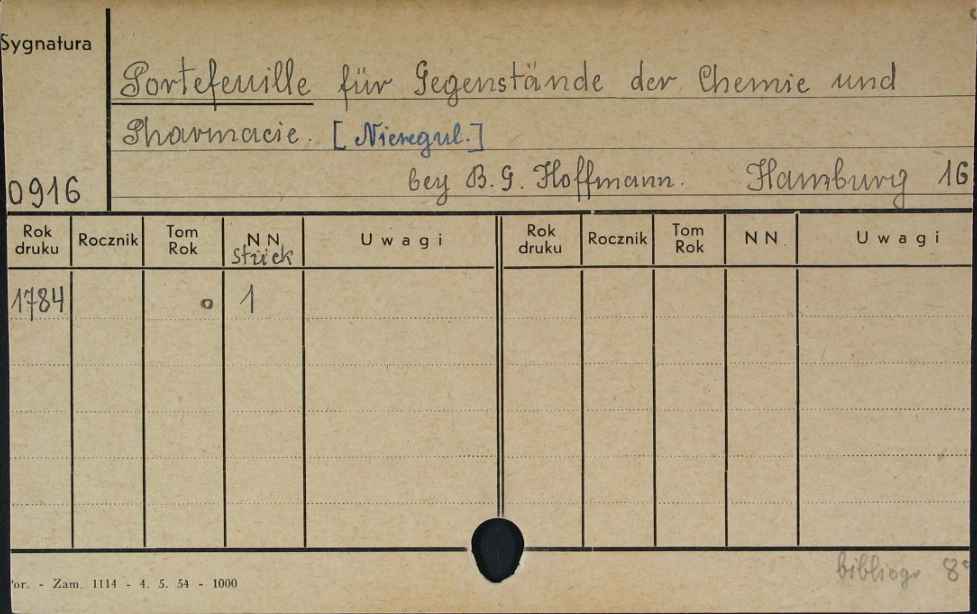 Sygnatura
Portefeuille für Gegenstände der Chemie und
Pharmacie. [Nieregul.]
bey B. G. Hoffmann. Hamburg 16
0916
Rok druku Rocznik Tom Rok NN Uwagi Rok druku Rocznik Tom Rok NN Uwagi
stück
1784 o 1
bibliogr 8°
or. - Zam. 1114 - 4. 5. 54 - 1000